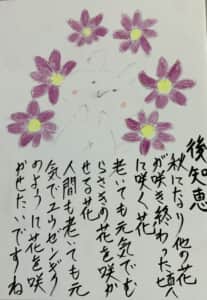 後知恵
秋になり他の花
が咲き終わった頃
に咲く花
老いても元気でむ
らさきの花を咲か
せる花
人間も老いても元
気でユウゼンギク
のように花を咲
かせたいですね